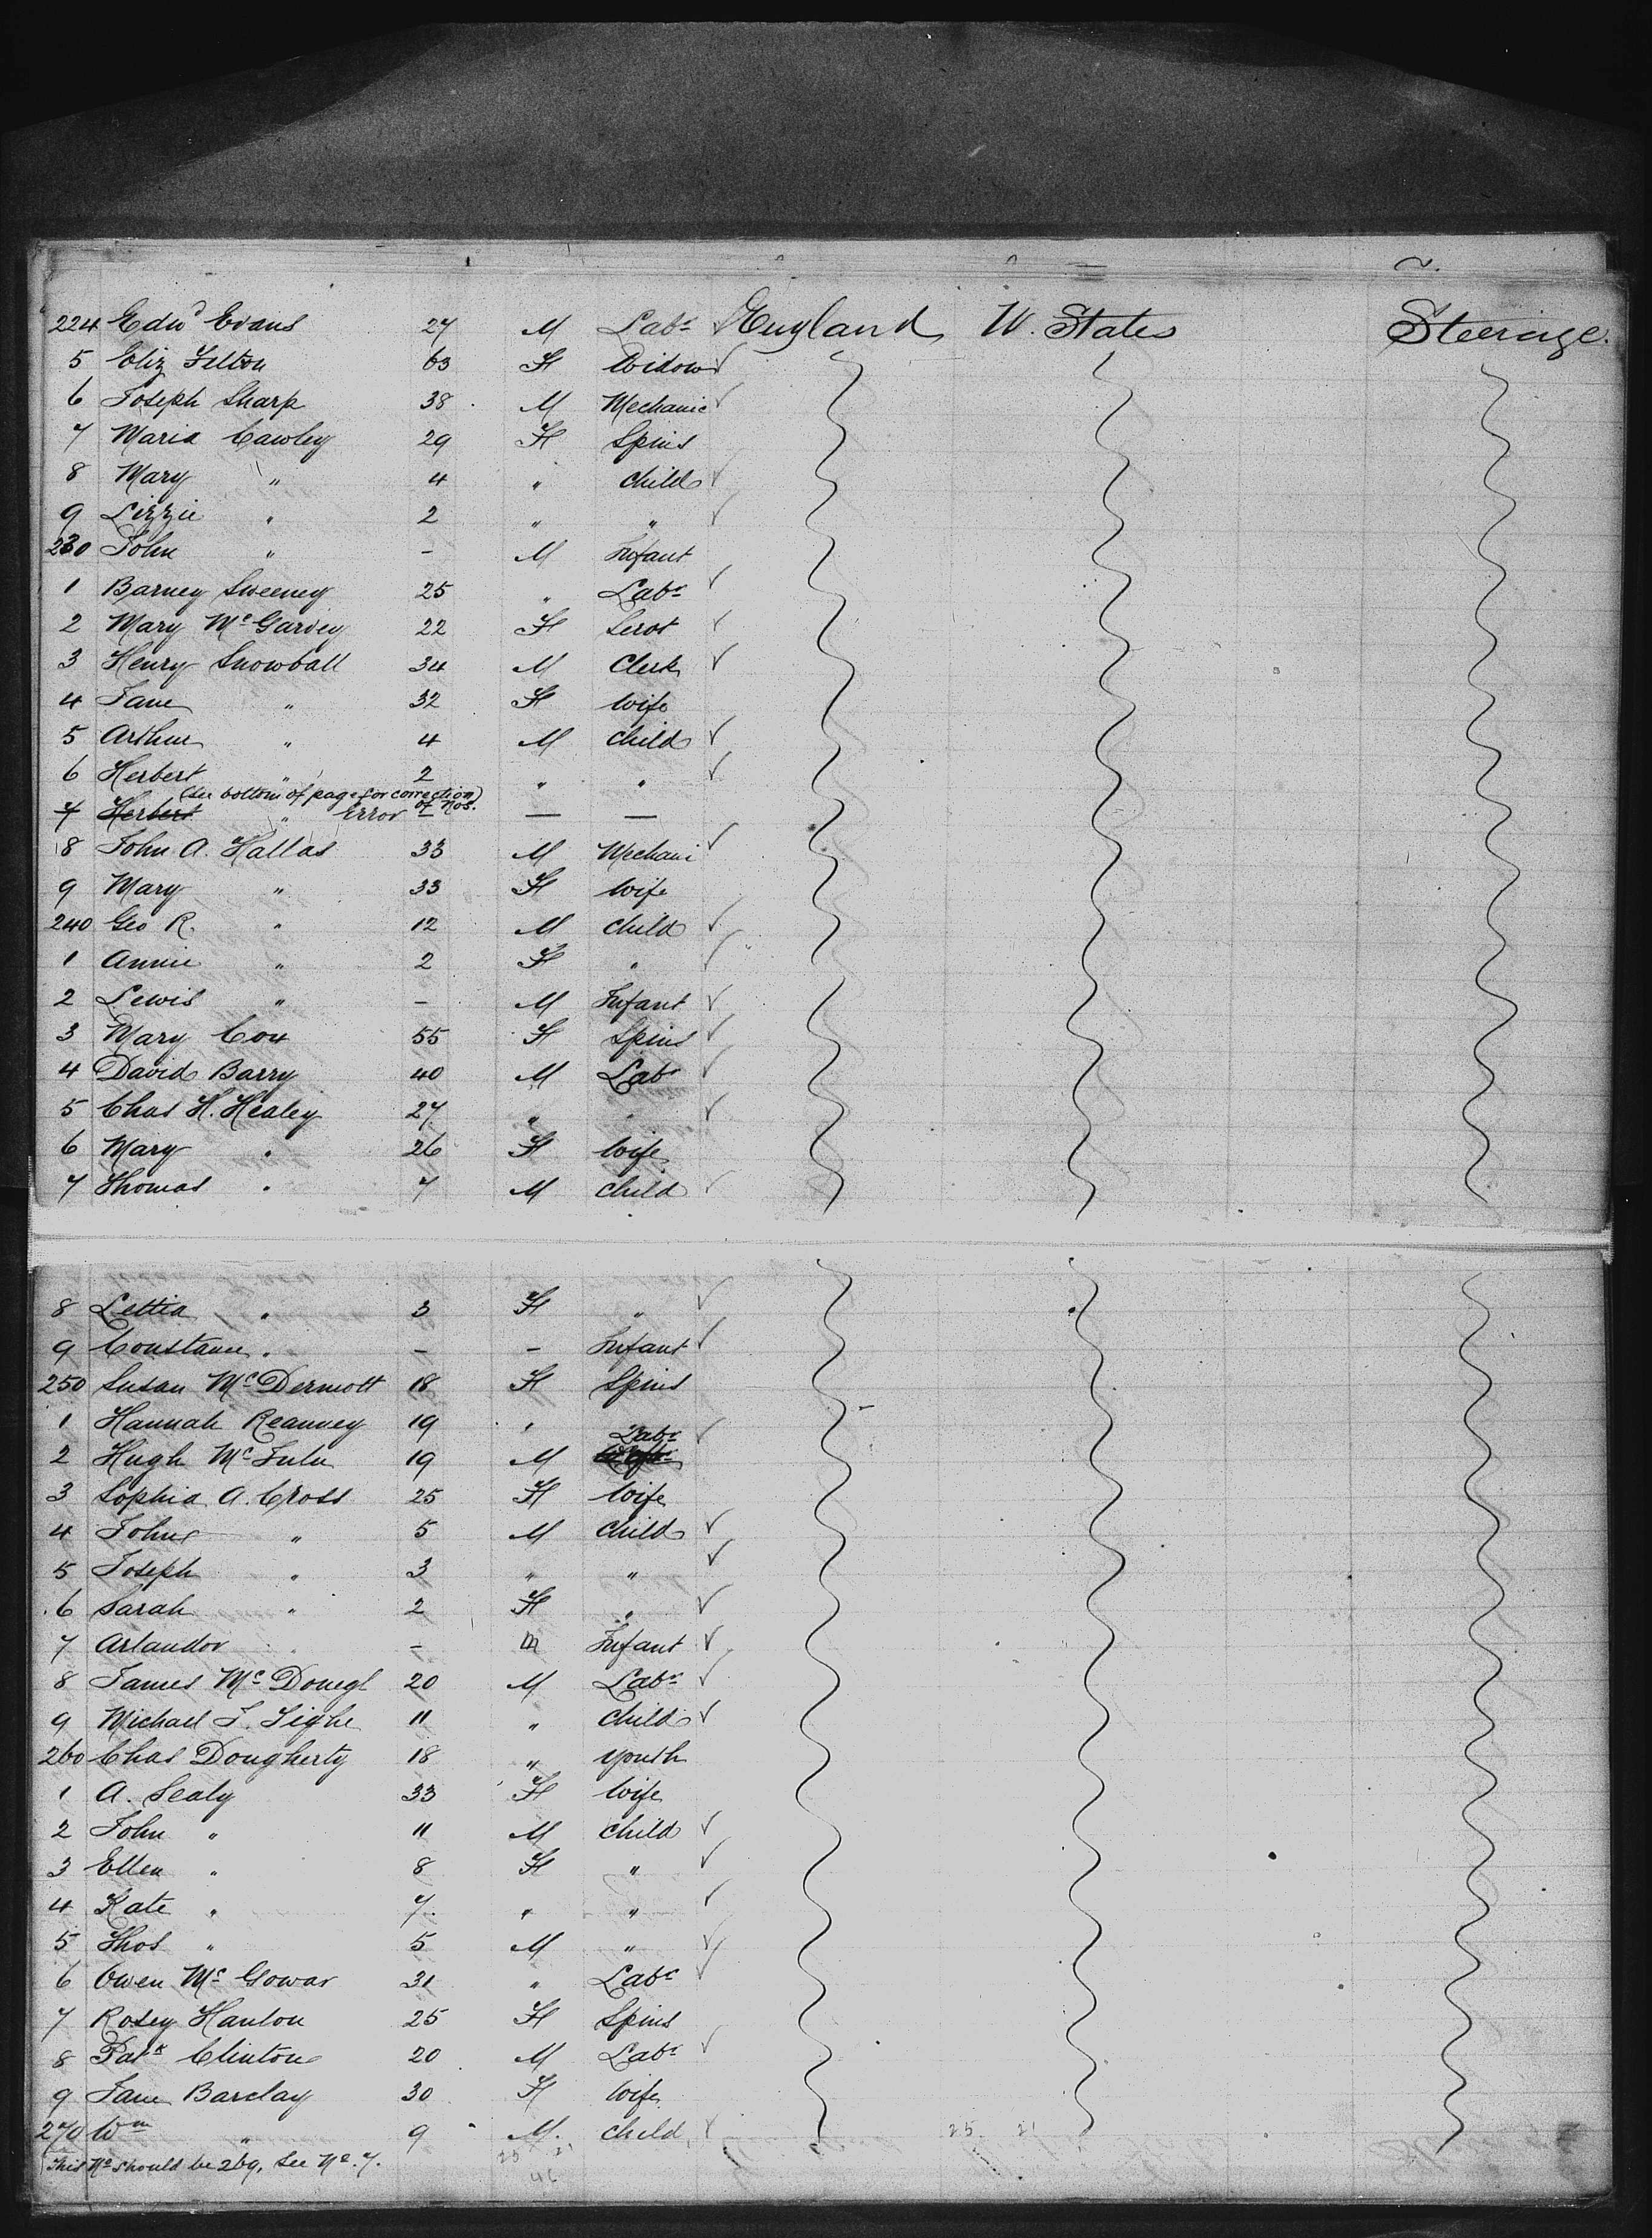 224 Edwd Evans 27 M Labr England U. States Steerage.
5 Eliz Felton 63 F Widow
6 Joseph Sharp 38 M Mechanic
7 Maria Cawley 29 F Spins
8 Mary " 4 " Child
9 Lizzie " 2 " "
230 John " – M Infant
1 Barney Sweeney 25 " Labr
2 Mary McGarvey 22 F Servt
3 Henry Snowball 34 M Clerk
4 Jane " 32 F Wife
5 Arthur " 4 M Child
6 Herbert " 2 " "
(See bottom of page for correction of Nos.)
7 Herbert " Error — — —
8 John A. Hallas 33 M Mechani
9 Mary " 33 F Wife
240 Geo R. " 12 M Child
1 Annie " 2 F "
2 Lewis " – M Infant
3 Mary Cox 55 F Spins
4 David Barry 40 M Labr
5 Chas H. Healey 27 " "
6 Mary " 26 F Wife
7 Thomas " 7 M Child
8 Lettia " 3 F "
9 Constance " – – Infant
250 Susan McDermott 18 F Spins
1 Hannah Reanney 19 "
2 Hugh Mc 19 M Labr
3 Sophia A. Cross 25 F Wife
4 John " 5 M Child
5 Joseph " 3 " "
6 Sarah " 2 F "
7 Arlandor " – M Infant
8 James McDonegl 20 M Labr
9 Michael J. Tighe 11 " Child
260 Chas Dougherty 18 " Youth
1 A. Sealy 33 F Wife
2 John " 11 M Child
3 Ellen " 8 F "
4 Kate " 7 " "
5 Thos " 5 M "
6 Owen McGowar 31 " Labr
7 Rosey Hanlon 25 F Spins
8 Patk Clinton 20 M Labr
9 Jane Barclay 30 F Wife
270 Wm " 9 M. Child 25 21
This No should be 269, See No. 7. 25 21
46